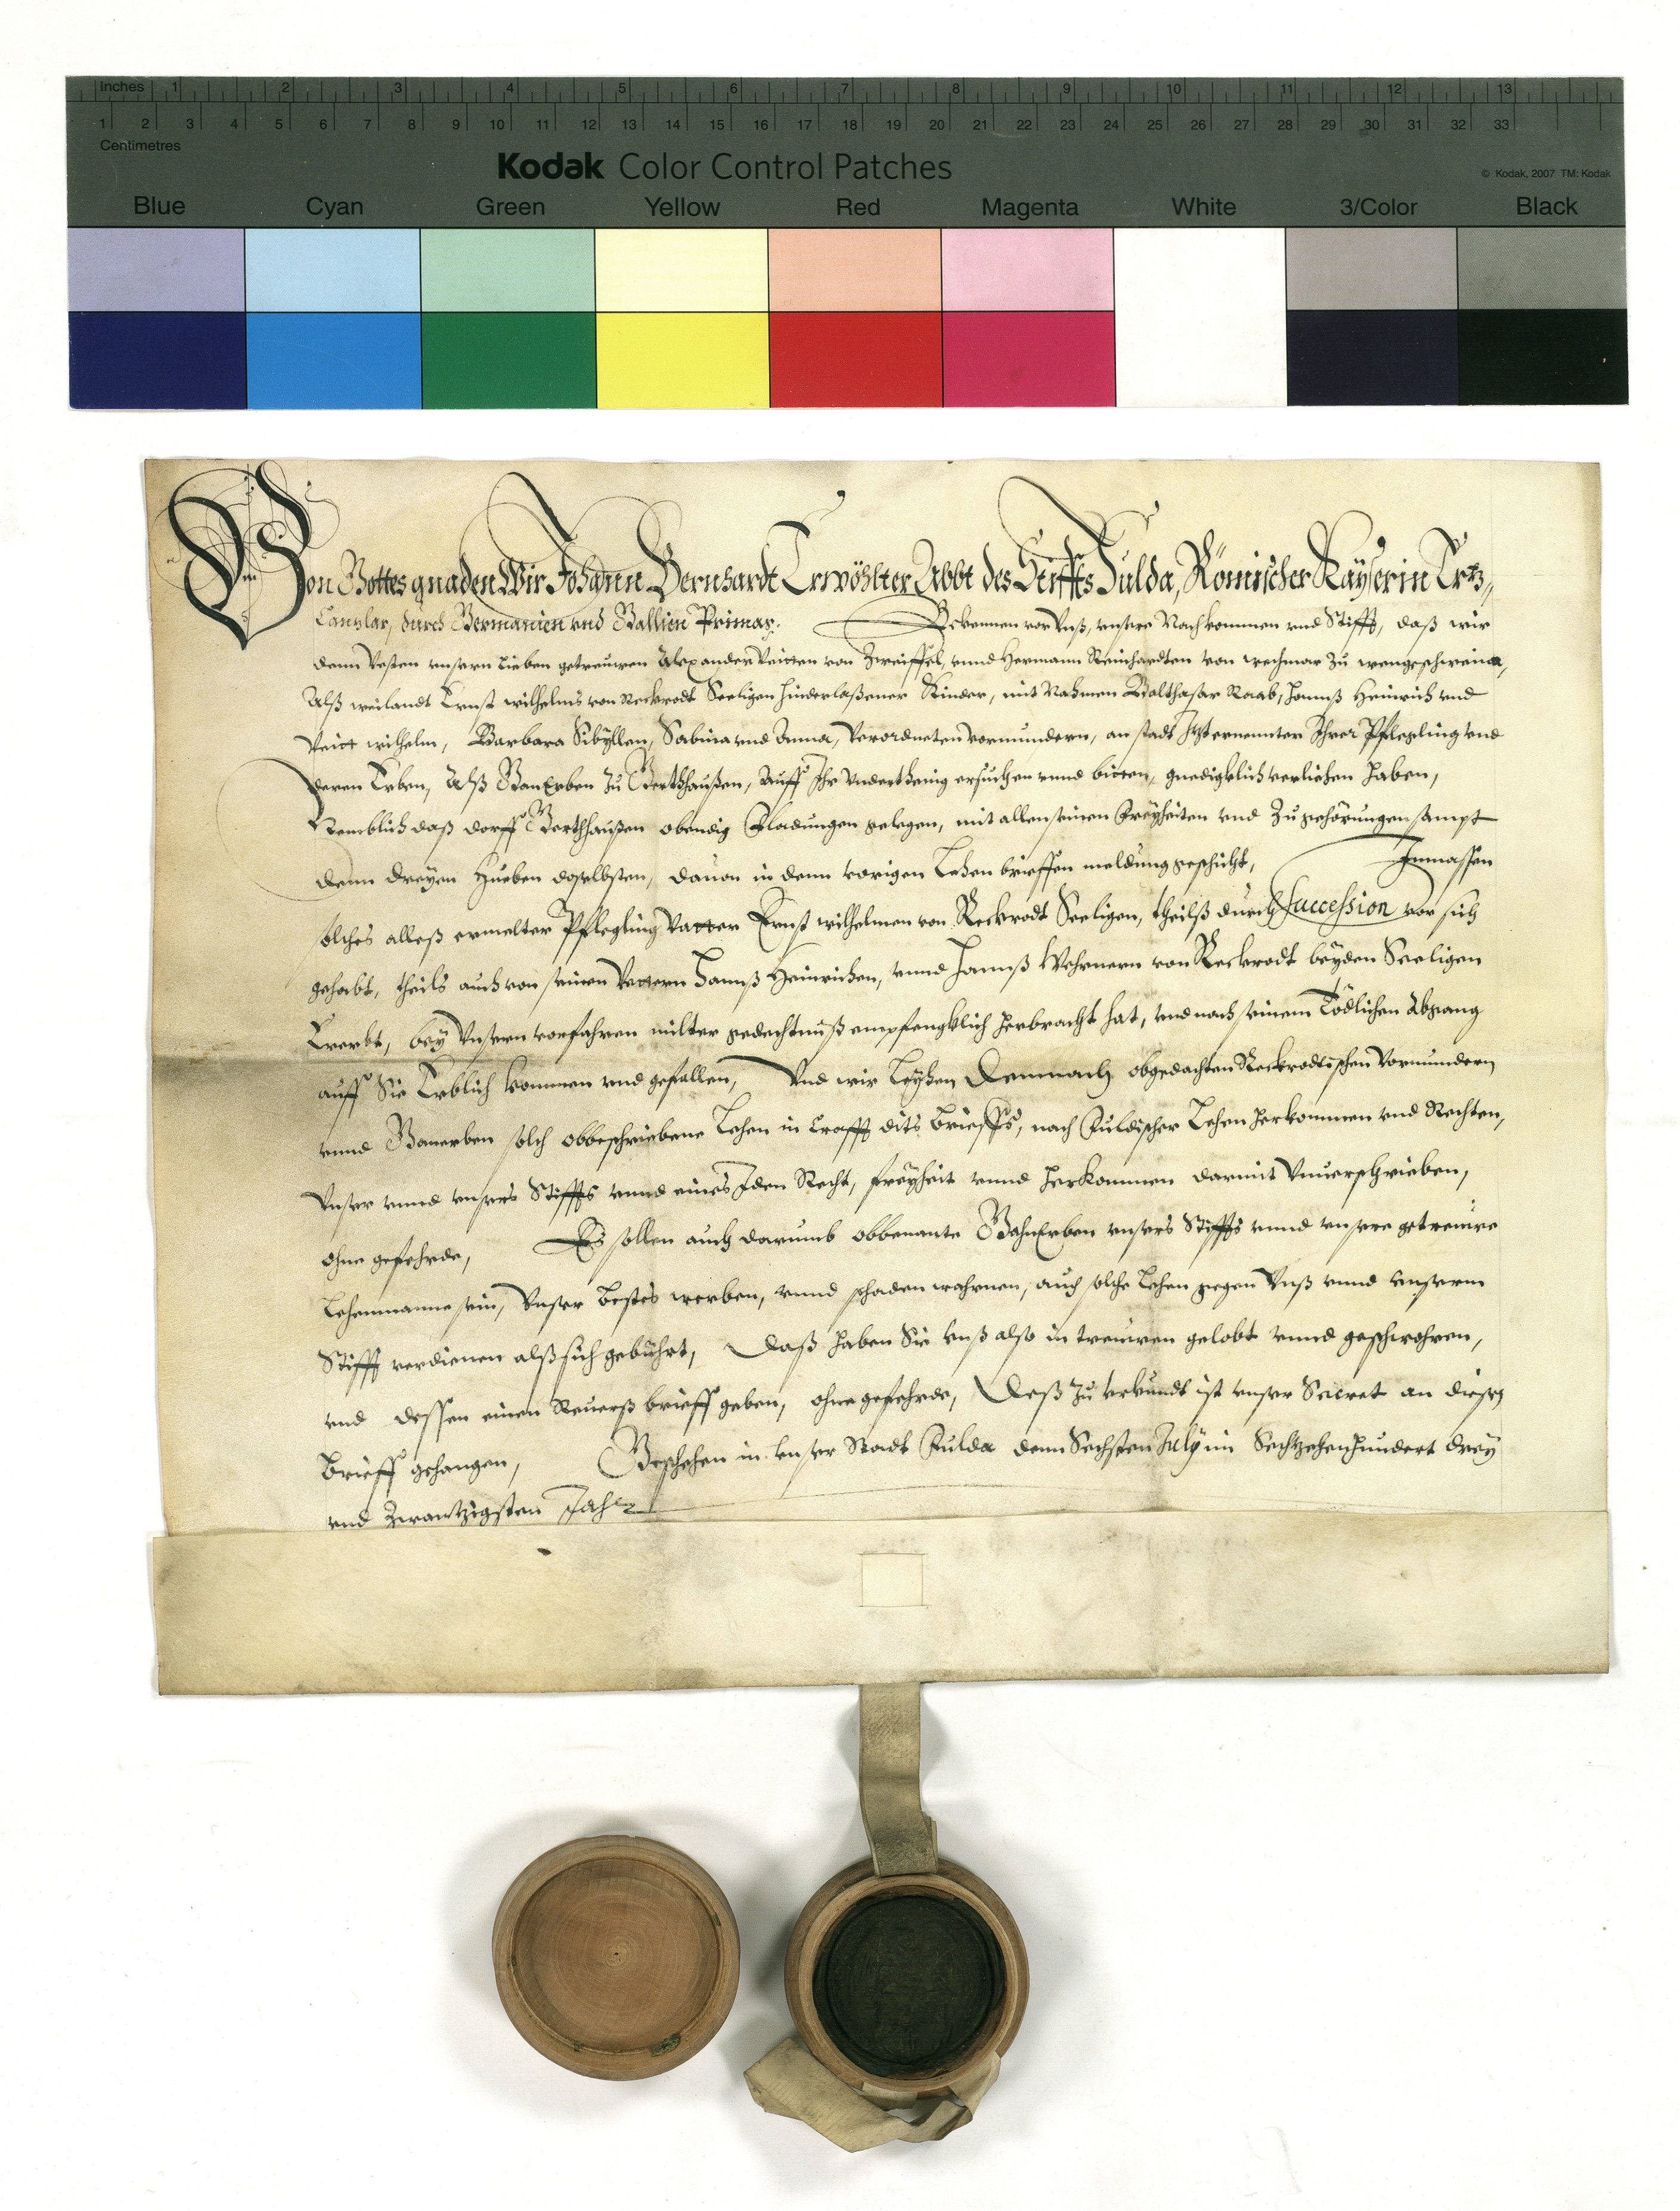 Inches 1 2 3 4 5 6 7 8 9 10 11 12 13
1 2 3 4 5 6 7 8 9 10 11 12 13 14 15 16 17 18 19 20 21 22 23 24 25 26 27 28 29 30 31 32 33
Centimetres
Kodak Color Control Patches
© Kodak, 2007 TM: Kodak
Blue Cyan Green Yellow Red Magenta White 3/Color Black
Von Gottes gnaden Wir Johann Bernhardt Erwöhlter Abbt des Stiffts Fulda, Römischer Kayserin Ertz,,
Canzlar, durch Germanien vnd Gallien Primas. Bekennen vor Vnß, vnsere Nachkommen vnd Stifft, daß wir
denn Vesten vnsern Lieben getreuwen Alexander Veitten von Zweiffel, vnnd Hermann Reinhardten von wechmar Zu
Alß weilandt Ernst wilhelms von Reckrodt Seeligen hinderlaßener Kinder, mit Nahmen Balthasar Raab, Hannß Heinrich vnd
Veitt wilhelm, Barbara Sibyllen, Sabina vnd Anna, Verordneten Vormundern, an stadt Jtzt ernennter Jhrer Pflegling vnd
deren Erben, Alß GanErben Zu Berthaußen, Auff Jhr Vnderthenig ersuchen vnnd bitten, gnedigklich verliehen haben,
Nemblich daß dorff Berthhaußen obendig Fladungen gelegen, mit allen seinen Freyheiten vnd Zugehörungen sampt
denn dreyen Hueben doselbsten, dauon in denn vorigen Lehen brieffen meldung geschicht, Jnmassen
solches alleß ermelter Pflegling Vatter Ernst wilhelmen von Reckrodt Seeligen, theilß durch Succession vor sich
gehabt, theils auch von seinen Vettern Hannß Heinrichen, vnnd Hannß Wehrnern von Reckrodt beyden Seeligen
Ererbt, bey Vnsern vorfahren milter gedechtnuß empfengklich herbracht hat, vnd nach seinem Tödlichen Abgang
auff Sie Erblich kommen vnd gefallen, Vnd wir Leyhen Demnach obgedachten Reckrodtischen Vormundern
vnnd Ganerben solch obbeschriebene Lehen in Crafft dits Brieffs, nach Fuldischer Lehen herkommen vnd Rechten,
Vnser vnnd vnsers Stiffts vnnd eines Jden Recht, freyheit vnnd herkommen darmit Vnuerschrieben,
ohne geferde, Es sollen auch darumb obbenante GahnErben vnsers Stiffts vnnd vnsere getreuwe
Lehenmanne sein, Vnser Bestes werben, vnnd schaden wahrnen, auch solche Lehen gegen Vnß vnnd vnserm
Stifft verdienen alß sich gebührt, Daß haben Sie vnß also in treuwen gelobt vnnd geschwohren,
vnd dessen einen Reuerß brieff geben, ohne geferde, Deß Zu vrkundt ist vnser Secret an diesen
Brieff gehangen, Geschehen in vnser Stadt Fulda denn Sechsten July im Sechtzehenhundert drey
vnd Zwantzigsten Jahr